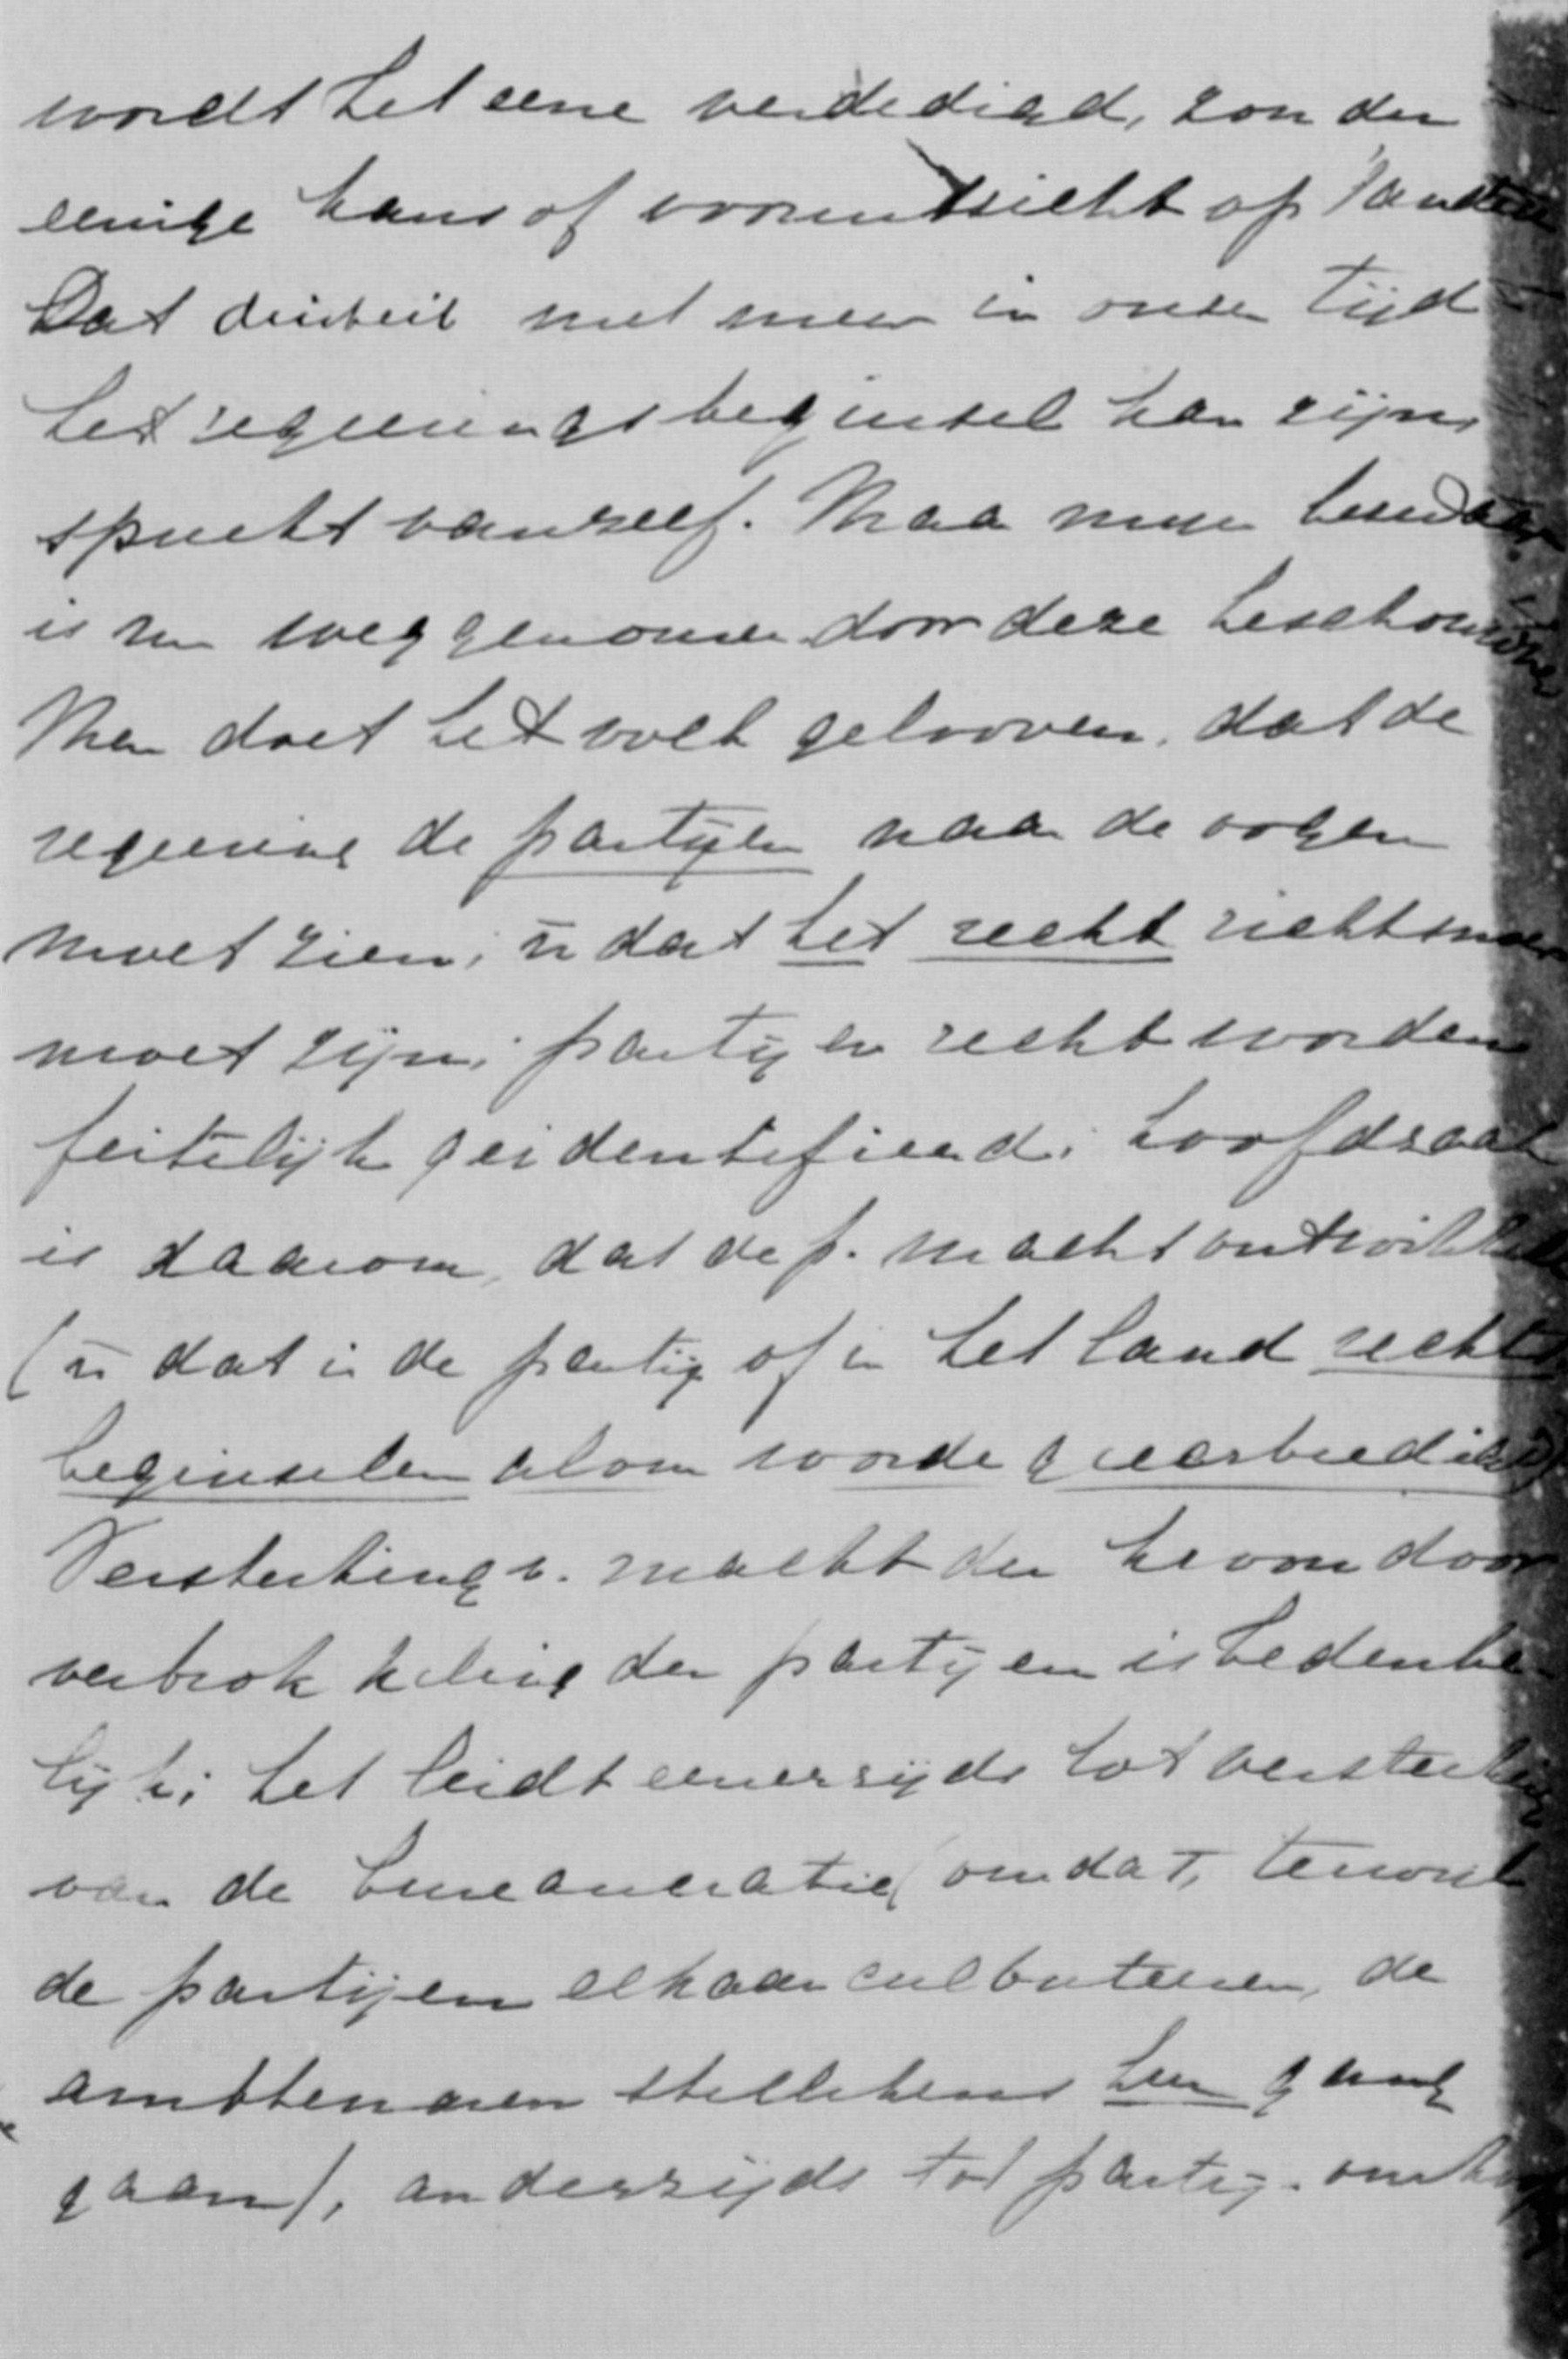 wordt het eene verdedigd, zonder
eenige kans of vooruitzicht op 'tandere
Dat niet meer in onzen tijd
het regeeringsbeginsel kan zijn,
spreekt vanzelf. Maar mijn bezwaar
is nu weggenomen door deze beschouwing
Men doet het volk gelooven, dat de
regeering de partijen naar de oogen
moet zien; n dat het recht richtsnoer
moet zijn; partij en recht worden
feitelijk geidentifieerd. hoofdzaak
is daarom, dat de p. macht ontwikkelt
(n dat in de partij of in het land rechts
beginselen alom worde geeerbiedigd)
Versterking v. macht der kroon door
verbrokkeling der partijen is bedenke-
lijk; het leidt eenerzijds tot versterking
van de bureaucratie (omdat, terwijl
de partijen elkaar culbuteeren, de
ambtenaren stillekens hun gang
gaan), anderzijds tot partij-